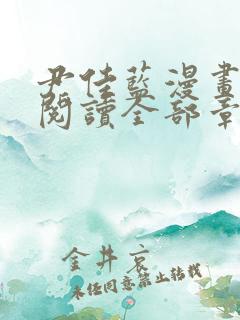 尹佳蓝漫畫
閱讀全部章
金井哀
未經同意禁止转载